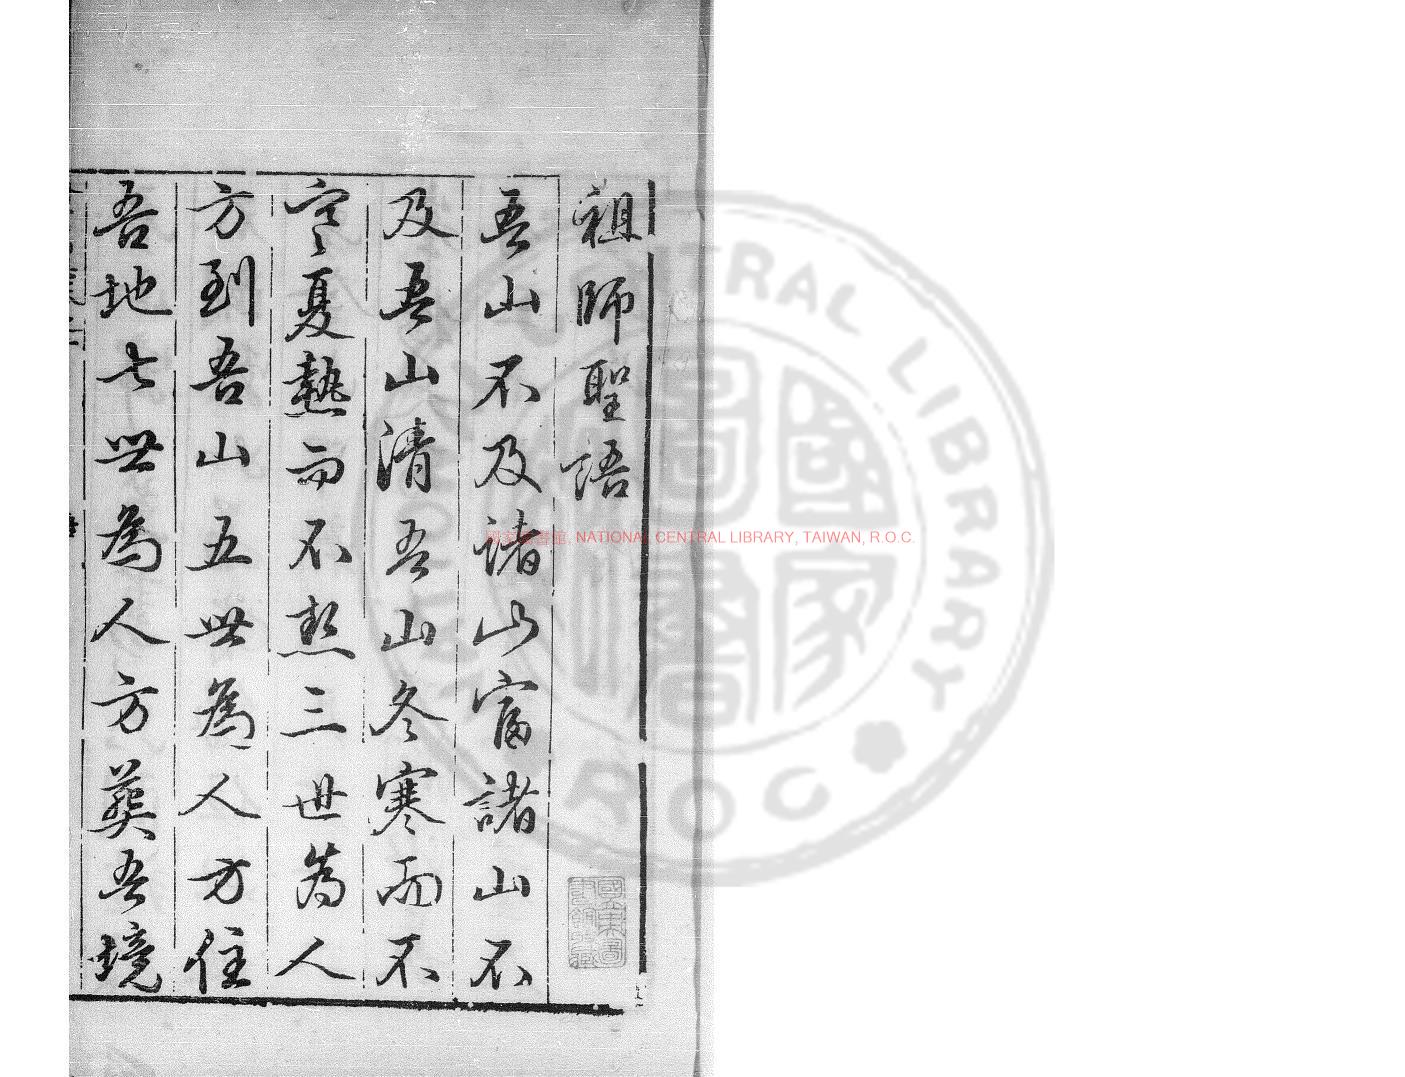 祖師聖語
吾山不及諸山富諸山不
及吾山清吾山冬寒而不
寒夏熱而不熱三世為人
方到吾山五世為人方住
吾地七世為人方葬吾境
國家圖書館, NATIONAL CENTRAL LIBRARY, TAIWAN, R.O.C.